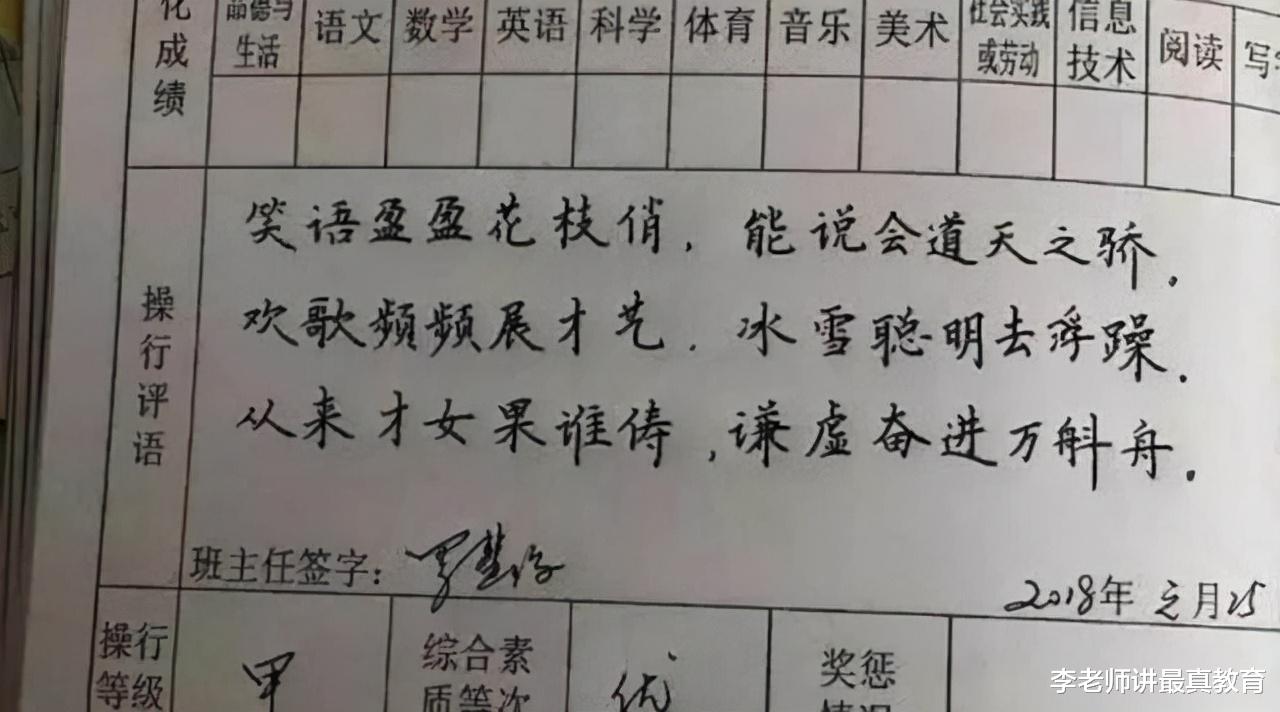 化成绩
品德与生活 语文 数学 英语 科学 体育 音乐 美术 社会实践或劳动 信息技术 阅读 写字
操行评语
笑语盈盈花枝俏，能说会道天之骄.
欢歌频频展才艺.冰雪聪明去浮躁.
从来才女果谁俦，谦虚奋进万斛舟.
班主任签字：
2018年元月25
操行等级 甲 综合素质等次 优 奖惩情况
李老师讲最真教育